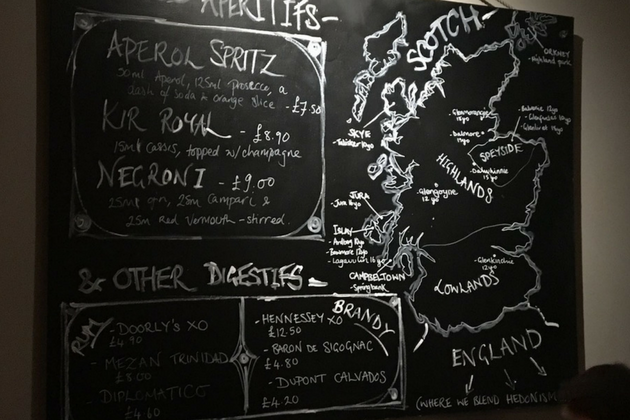 APERITIFS-
APEROL SPRITZ
50ml Aperol, 125ml prosecco, a
dash of soda & orange slice - £7.50
KIR ROYAL - £8.90
15ml cassis, topped w/ champagne
NEGRONI - £9.00
25ml gin, 25ml Campari &
25ml Red Vermouth - stirred.
& OTHER DIGESTIFS
RUM
- DOORLY'S XO
£4.90
- MEZAN TRINIDAD
£5.00
- DIPLOMATICO
£4.60
BRANDY
- HENNESSEY XO
£12.50
- BARON DE SIGOGNAC
£4.80
- DUPONT CALVADOS
£4.20
SCOTCH-
ORKNEY
- Highland park
SKYE
- Talisker 10yo
SPEYSIDE
HIGHLANDS
- Dalwhinnie
15 yo
- Glengoyne
12 yo
JURA
- Jura 10yo
ISLAY
- Ardbeg 10yo
- Bowmore 12yo
- Lagavulin 16yo
CAMPBELTOWN
- Springbank
- Glenkinchie
12yo
LOWLANDS
ENGLAND
(WHERE WE BLEND HEDONISM